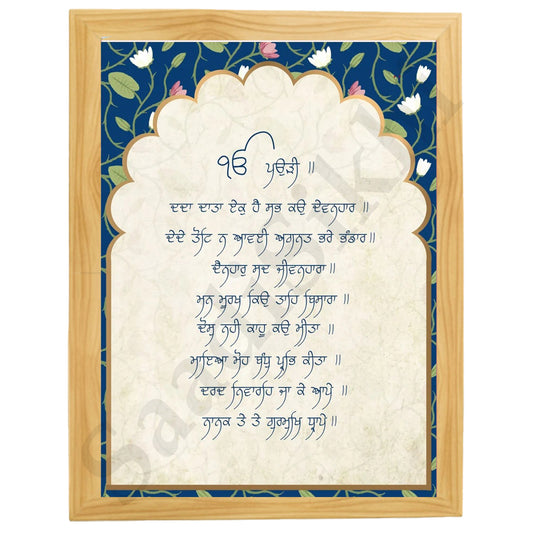 ੴ ਪਉੜੀ ॥
ਦਦਾ ਦਾਤਾ ਏਕੁ ਹੈ ਸਭ ਕਉ ਦੇਵਨਹਾਰ ॥
ਦੇਂਦੇ ਤੋਟਿ ਨ ਆਵਈ ਅਗਨਤ ਭਰੇ ਭੰਡਾਰ ॥
ਦੈਨਹਾਰੁ ਸਦ ਜੀਵਨਹਾਰਾ ॥
ਮਨ ਮੂਰਖ ਕਿਉ ਤਾਹਿ ਬਿਸਾਰਾ ॥
ਦੋਸੁ ਨਹੀ ਕਾਹੂ ਕਉ ਮੀਤਾ ॥
ਮਾਇਆ ਮੋਹ ਬੰਧੁ ਪ੍ਰਭਿ ਕੀਤਾ ॥
ਦਰਦ ਨਿਵਾਰਹਿ ਜਾ ਕੇ ਆਪੇ ॥
ਨਾਨਕ ਤੇ ਤੇ ਗੁਰਮੁਖਿ ਧ੍ਰਾਪੇ ॥